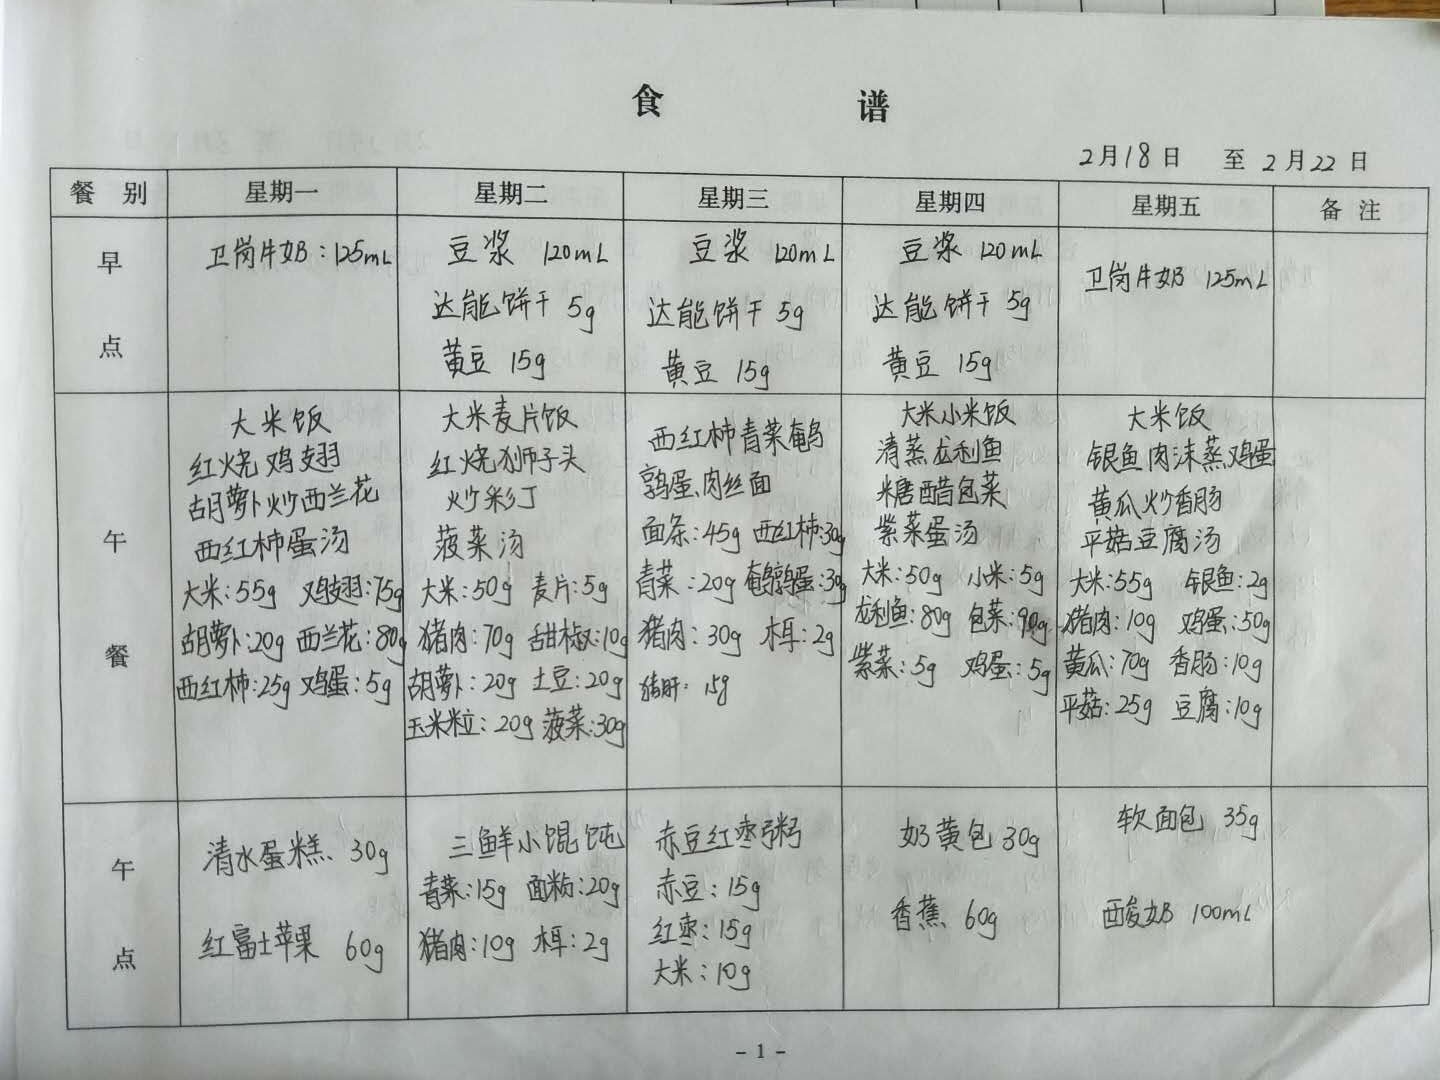 食 谱
2月18日 至2月22日
餐 别 星期一 星期二 星期三 星期四 星期五 备 注
早
点
卫岗牛奶:125mL
豆浆 120mL
达能饼干 5g
黄豆 15g
豆浆 120mL
达能饼干 5g
黄豆 15g
豆浆 120mL
达能饼干 5g
黄豆 15g
卫岗牛奶 125mL
午
餐
大米饭
红烧鸡翅
胡萝卜炒西兰花
西红柿蛋汤
大米:55g 鸡翅:75g
胡萝卜:20g 西兰花:80g
西红柿:25g 鸡蛋:5g
大米麦片饭
红烧狮子头
炒彩丁
菠菜汤
大米:50g 麦片:5g
猪肉:70g 甜椒:10g
胡萝卜:20g 土豆:20g
玉米粒:20g 菠菜:30g
西红柿青菜鹌
鹑蛋肉丝面
面条:45g 西红柿:30g
青菜:20g 鹌鹑蛋:30g
猪肉:30g 木耳:2g
猪肝:15g
大米小米饭
清蒸龙利鱼
糖醋包菜
紫菜蛋汤
大米:50g 小米:5g
龙利鱼:80g 包菜:90g
紫菜:5g 鸡蛋:5g
大米饭
银鱼肉沫蒸鸡蛋
黄瓜炒香肠
平菇豆腐汤
大米:55g 银鱼:2g
猪肉:10g 鸡蛋:50g
黄瓜:70g 香肠:10g
平菇:25g 豆腐:10g
午
点
清水蛋糕 30g
红富士苹果 60g
三鲜小馄饨
青菜:15g 面粉:20g
猪肉:10g 木耳:2g
赤豆红枣粥
赤豆:15g
红枣:15g
大米:10g
奶黄包 30g
香蕉 60g
软面包 35g
酸奶 100mL
- 1 -